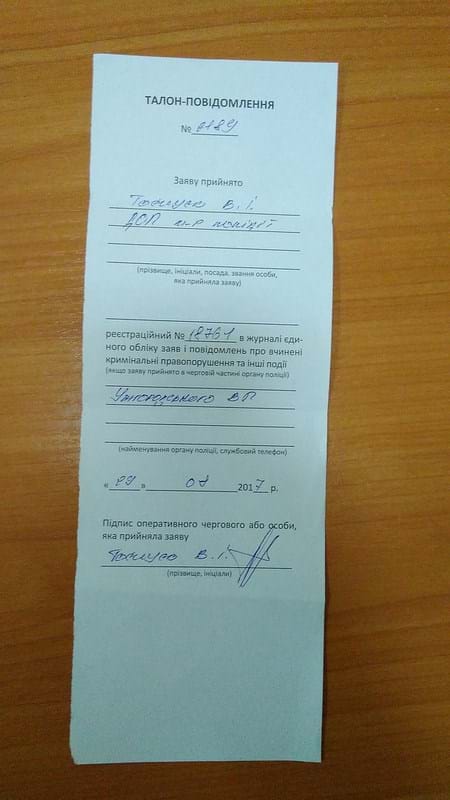 ТАЛОН-ПОВІДОМЛЕННЯ
№ 0189
Заяву прийнято
В. І.
ДОП м-р поліції
(прізвище, ініціали, посада, звання особи,
яка прийняла заяву)
реєстраційний № 18761 в журналі єди-
ного обліку заяв і повідомлень про вчинені
кримінальні правопорушення та інші події
(якщо заяву прийнято в черговій частині органу поліції)
Ужгородського ВП
(найменування органу поліції, службовий телефон)
« 29 » 2017 р.
Підпис оперативного чергового або особи,
яка прийняла заяву
В. І.
(прізвище, ініціали)